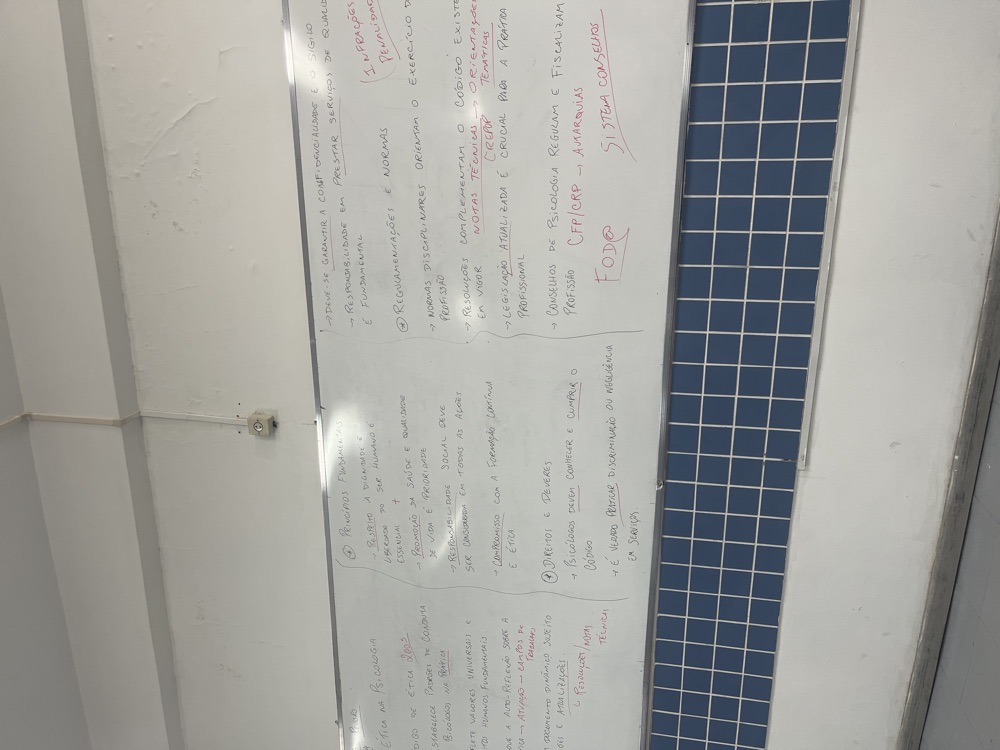 ÉTICA NA PSICOLOGIA
DIGO DE ÉTICA 2005
STABELECE PADRÕES DE CONDUTA
PSICÓLOGOS NA PRÁTICA
FLETE VALORES UNIVERSAIS E
HUMANOS FUNDAMENTAIS
QUE A AUTO-REFLEXÃO SOBRE A
→ ATUAÇÃO → CAMPOS DE
TRABALHO
DOCUMENTO DINÂMICO SUJEITO
E ATUALIZAÇÕES.
RESOLUÇÕES/NOTAS
TÉCNICAS
* PRINCÍPIOS FUNDAMENTAIS
→ RESPEITO À DIGNIDADE E
LIBERDADE DO SER HUMANO É
ESSENCIAL +
→ PROMOÇÃO DA SAÚDE E QUALIDADE
DE VIDA É PRIORIDADE
→ RESPONSABILIDADE SOCIAL DEVE
SER CONSIDERADA EM TODAS AS AÇÕES
→ COMPROMISSO COM A FORMAÇÃO CONTÍNUA
E ÉTICA
* DIREITOS E DEVERES
→ PSICÓLOGOS DEVEM CONHECER E CUMPRIR O
CÓDIGO
→ É VEDADO PRATICAR DISCRIMINAÇÃO OU NEGLIGÊNCIA
EM SERVIÇOS
→ DEVE-SE GARANTIR A CONFIDENCIALIDADE E O SIGILO
→ RESPONSABILIDADE EM PRESTAR SERVIÇOS DE QUALID
É FUNDAMENTAL
(INFRAÇÕES
PENALIDAD
* REGULAMENTAÇÕES E NORMAS
→ NORMAS DISCIPLINARES ORIENTAM O EXERCÍCIO D
PROFISSÃO
→ RESOLUÇÕES COMPLEMENTAM O CÓDIGO EXISTE
EM VIGOR NOTAS TÉCNICAS → ORIENTAÇÕES
CREPOP TEMÁTICAS
→ LEGISLAÇÃO ATUALIZADA É CRUCIAL PARA A PRÁTICA
PROFISSIONAL
→ CONSELHOS DE PSICOLOGIA REGULAM E FISCALIZAM
PROFISSÃO CFP/CRP → AUTARQUIAS
FOD@ SISTEMA CONSELHOS